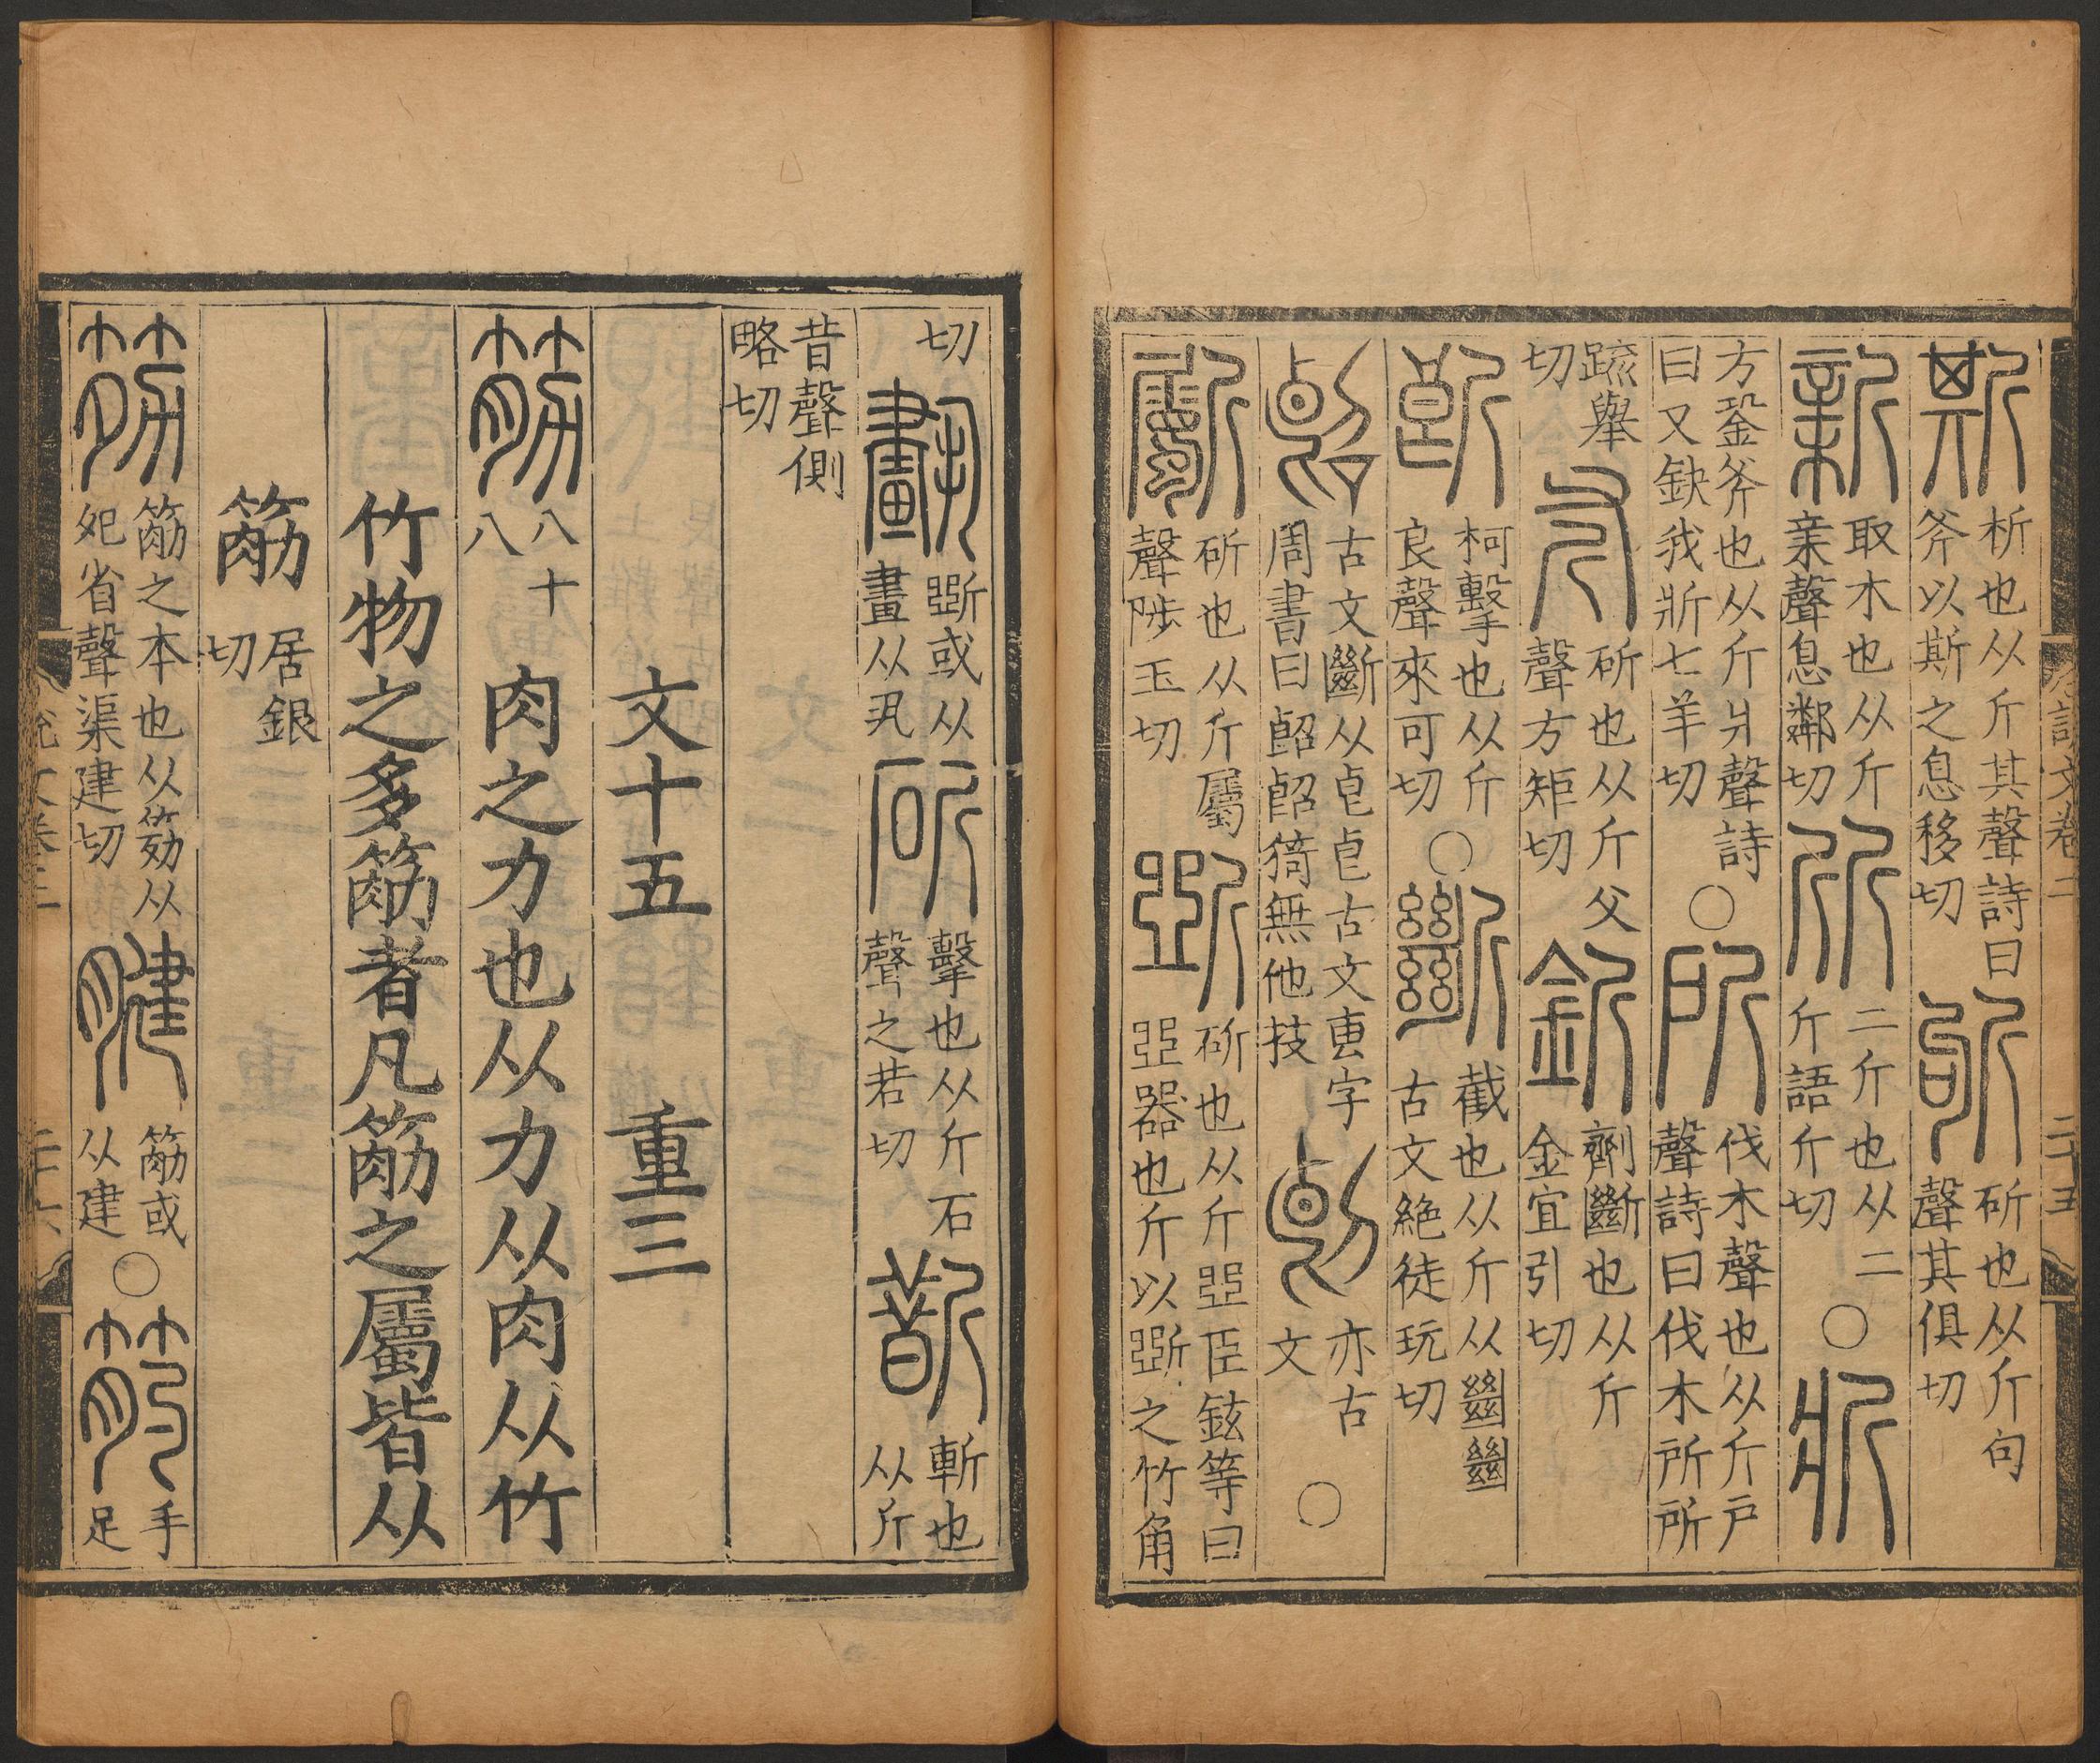 斯 析也从斤其聲詩曰斧以斯之息移切 斪 斫也从斤句聲其俱切
新 取木也从斤亲聲息鄰切 斦 二斤也从二斤語斤切 ○ 斨
方銎斧也从斤爿聲詩曰又缺我斨七羊切 ○ 所 伐木聲也从斤戶聲詩曰伐木所所
疏舉切 斧 斫也从斤父聲方矩切 釿 劑斷也从斤金宜引切
㪾 柯擊也从斤良聲來可切 ○ 斷 截也从斤从㡭㡭古文絶徒玩切
𠸿 古文斷从𠧢𠧢古文叀字周書曰𠸿𠸿猗無他技 亦古文 ○
斸 斫也从斤屬聲陟玉切 斲 斫也从斤㔽臣鉉等曰㔽器也斤以斲之竹角
切 斲或从畫从丮 斫 擊也从斤石聲之若切 斮 斬也从斤
昔聲側略切
文十五 重三
筋 八十八 肉之力也从力从肉从竹
竹物之多筋者凡筋之屬皆从
筋 居銀切
筋之本也从筋从夗省聲渠建切 腱 筋或从建 ○ 手足